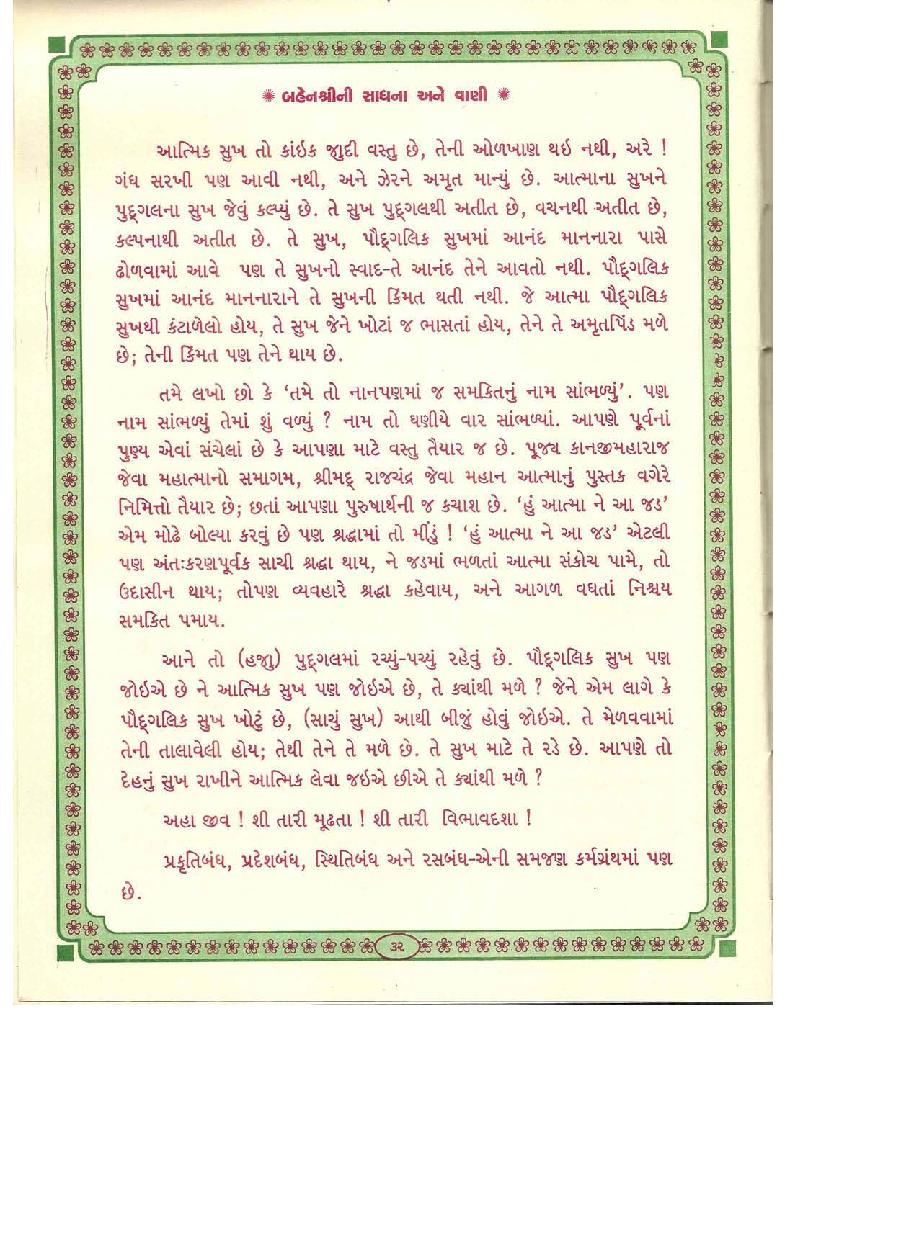 ✺ બહેનશ્રીની સાધના અને વાણી ✺
આત્મિક સુખ તો કાંઇક જુદી વસ્તુ છે, તેની ઓળખાણ થઇ નથી, અરે !
ગંધ સરખી પણ આવી નથી, અને ઝેરને અમૃત માન્યું છે. આત્માના સુખને
પુદ્ગલના સુખ જેવું કલ્પ્યું છે. તે સુખ પુદ્ગલથી અતીત છે, વચનથી અતીત છે,
કલ્પનાથી અતીત છે. તે સુખ, પૌદ્ગલિક સુખમાં આનંદ માનનારા પાસે
ઢોળવામાં આવે પણ તે સુખનો સ્વાદ-તે આનંદ તેને આવતો નથી. પૌદ્ગલિક
સુખમાં આનંદ માનનારાને તે સુખની કિંમત થતી નથી. જે આત્મા પૌદ્ગલિક
સુખથી કંટાળેલો હોય, તે સુખ જેને ખોટાં જ ભાસતાં હોય, તેને તે અમૃતપિંડ મળે
છે; તેની કિંમત પણ તેને થાય છે.
તમે લખો છો કે ‘તમે તો નાનપણમાં જ સમકિતનું નામ સાંભળ્યું’. પણ
નામ સાંભળ્યું તેમાં શું વળ્યું ? નામ તો ઘણીયે વાર સાંભળ્યાં. આપણે પૂર્વનાં
પુણ્ય એવાં સંચેલાં છે કે આપણા માટે વસ્તુ તૈયાર જ છે. પૂજ્ય કાનજીમહારાજ
જેવા મહાત્માનો સમાગમ, શ્રીમદ્ રાજચંદ્ર જેવા મહાન આત્માનું પુસ્તક વગેરે
નિમિત્તો તૈયાર છે; છતાં આપણા પુરુષાર્થની જ કચાશ છે. ‘હું આત્મા ને આ જડ’
એમ મોઢે બોલ્યા કરવું છે પણ શ્રદ્ધામાં તો મીંડું ! ‘હું આત્મા ને આ જડ’ એટલી
પણ અંતઃકરણપૂર્વક સાચી શ્રદ્ધા થાય, ને જડમાં ભળતાં આત્મા સંકોચ પામે, તો
ઉદાસીન થાય; તોપણ વ્યવહારે શ્રદ્ધા કહેવાય, અને આગળ વધતાં નિશ્ચય
સમકિત પમાય.
આને તો (હજુ) પુદ્ગલમાં રચ્યું-પચ્યું રહેવું છે. પૌદ્ગલિક સુખ પણ
જોઇએ છે ને આત્મિક સુખ પણ જોઇએ છે, તે ક્યાંથી મળે ? જેને એમ લાગે કે
પૌદ્ગલિક સુખ ખોટું છે, (સાચું સુખ) આથી બીજું હોવું જોઇએ. તે મેળવવામાં
તેની તાલાવેલી હોય; તેથી તેને તે મળે છે. તે સુખ માટે તે રડે છે. આપણે તો
દેહનું સુખ રાખીને આત્મિક લેવા જઇએ છીએ તે ક્યાંથી મળે ?
અહા જીવ ! શી તારી મૂઢતા ! શી તારી વિભાવદશા !
પ્રકૃતિબંધ, પ્રદેશબંધ, સ્થિતિબંધ અને રસબંધ-એની સમજણ કર્મગ્રંથમાં પણ
છે.
૩૨